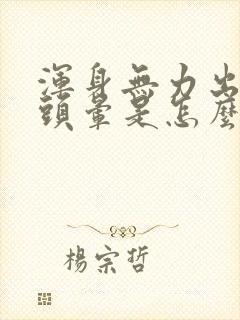 渾身無力出
頭暈是怎麼
楊宗哲